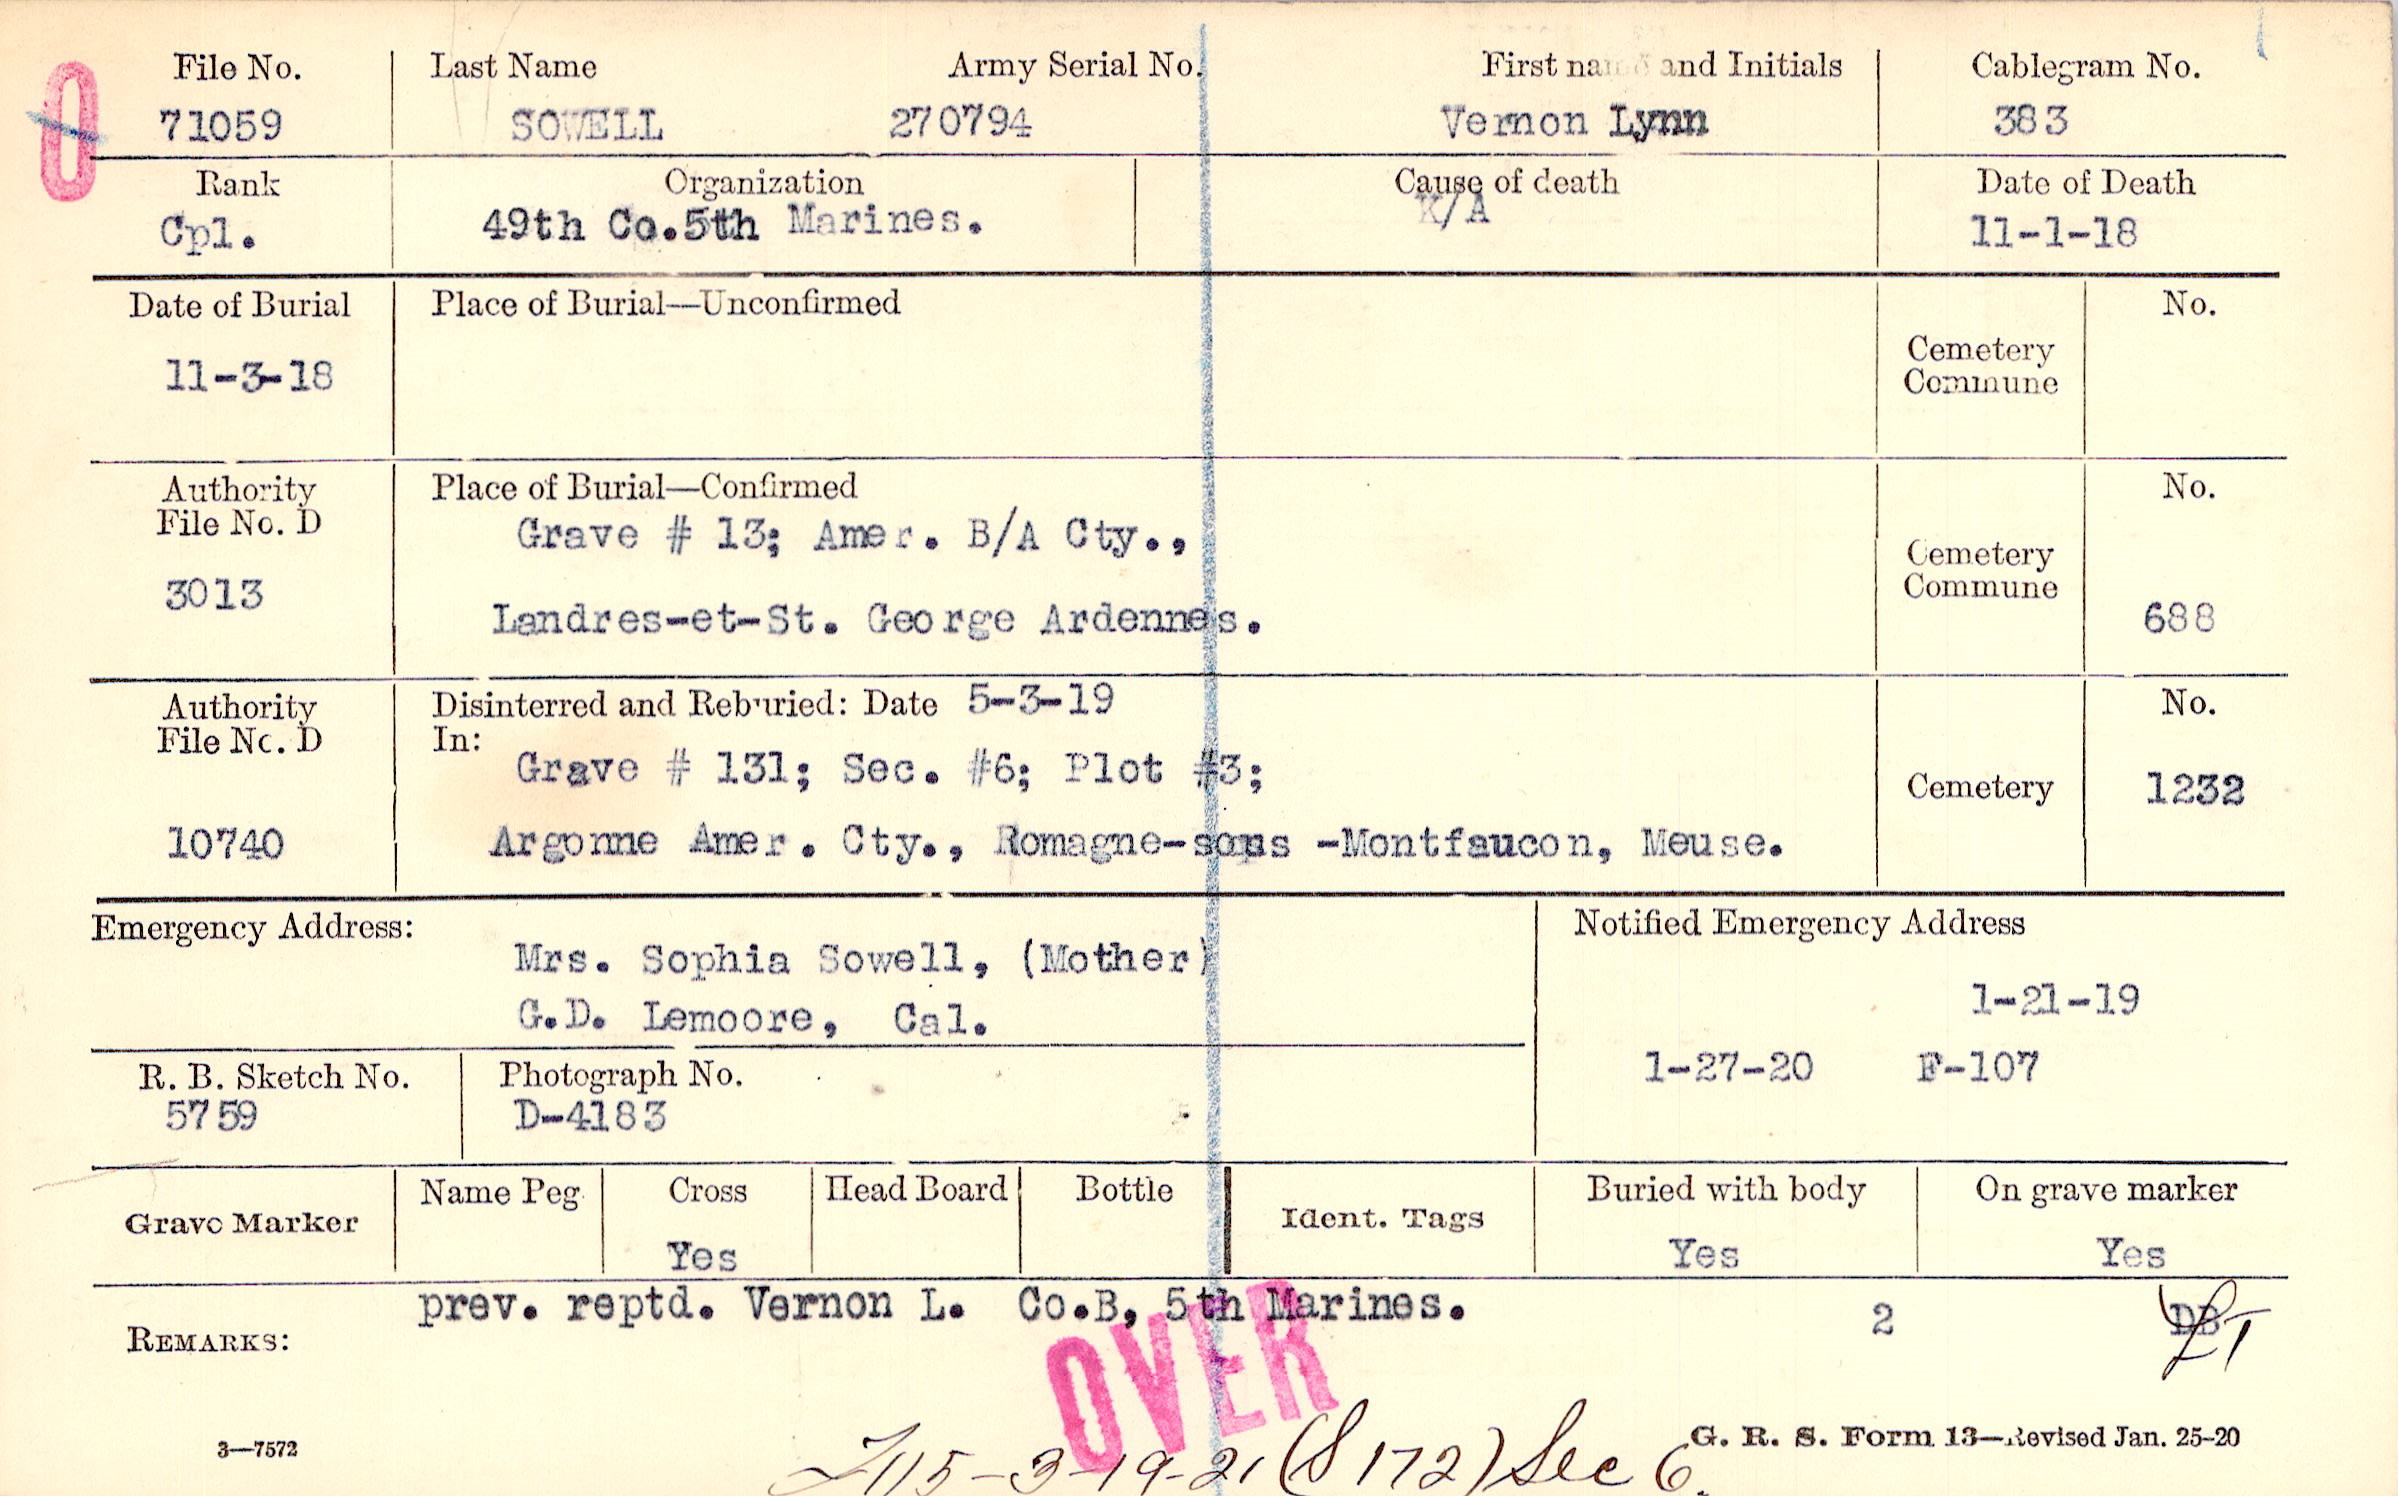 File No. Last Name Army Serial No. First name and Initials Cablegram No.
O
71059 SOWELL 270794 Vernon Lynn 383
Rank Organization Cause of death Date of Death
Cpl. 49th Co.5th Marines. K/A 11-1-18
Date of Burial Place of Burial—Unconfirmed No.
11-3-18 Cemetery
Commune
Authority Place of Burial—Confirmed No.
File No. D
Grave # 13; Amer. B/A Cty.,
3013 Cemetery
Commune
Landres-et-St. George Ardennes. 688
Authority Disinterred and Reburied: Date 5-3-19 No.
File No. D In:
Grave # 131; Sec. #6; Plot #3;
Cemetery 1232
10740 Argonne Amer. Cty., Romagne-sous -Montfaucon, Meuse.
Emergency Address: Notified Emergency Address
Mrs. Sophia Sowell, (Mother)
G.D. Lemoore, Cal. 1-21-19
1-27-20 F-107
R. B. Sketch No. Photograph No.
5759 D-4183
Grave Marker Name Peg Cross Head Board Bottle Ident. Tags Buried with body On grave marker
Yes Yes Yes
prev. reptd. Vernon L. Co.B, 5th Marines. 2 DB
REMARKS:
OVER
3—7572 G. R. S. Form 13—Revised Jan. 25-20
115-3-19-21 (S172) Sec 6.